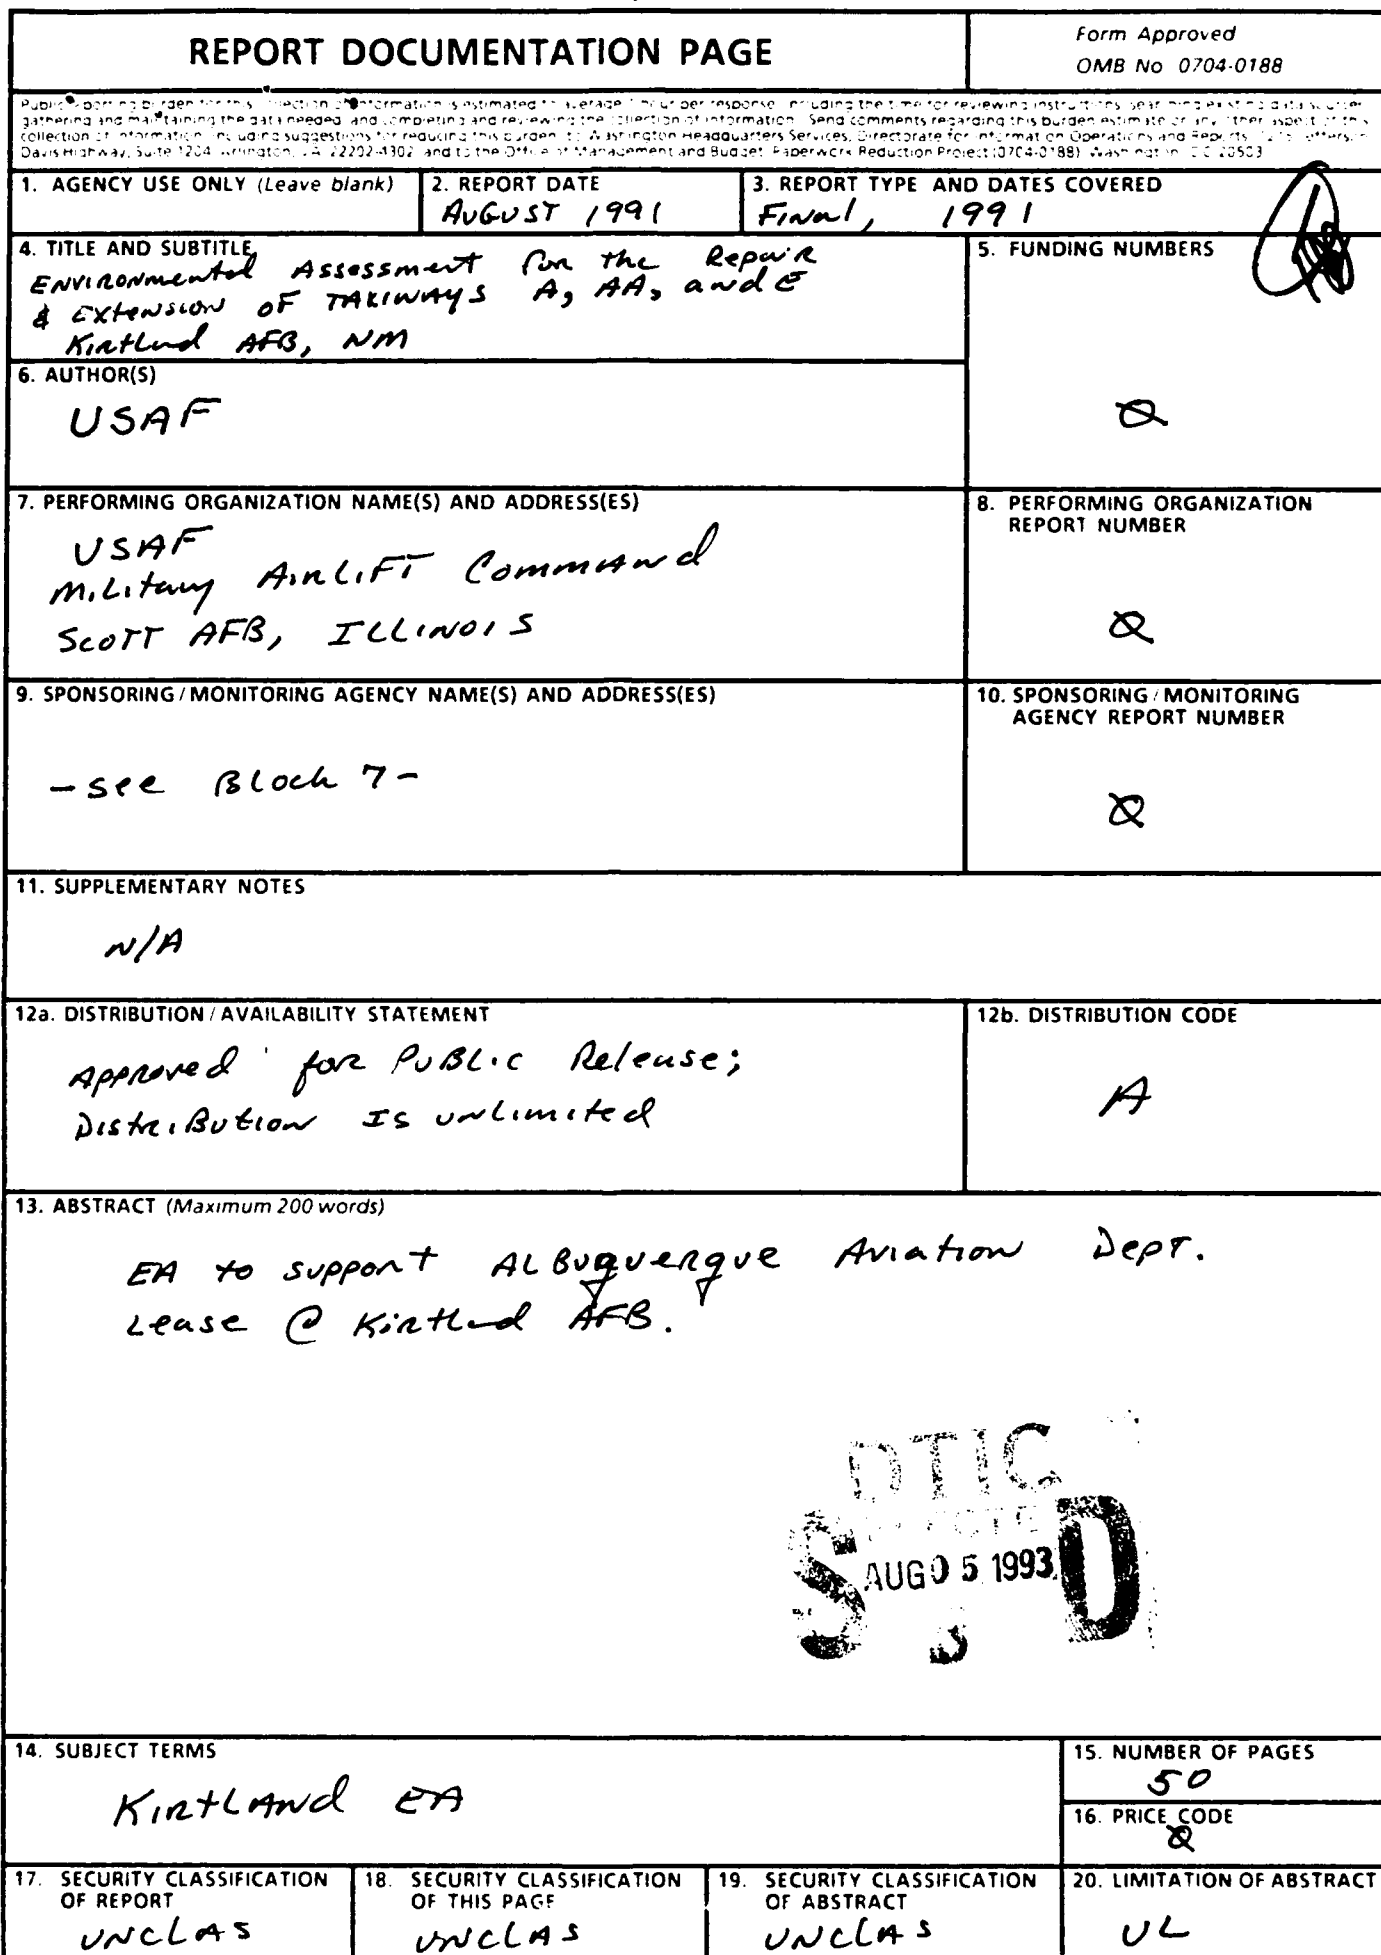 REPORT DOCUMENTATION PAGE
Form Approved
OMB No 0704-0188
gathering and maintaining the data needed, and completing and reviewing the collection of information. Send comments regarding this burden estimate or any other aspect of this
collection of information, including suggestions for reducing this burden, to Washington Headquarters Services, Directorate for Information Operations and Reports,
Davis Highway, Suite 1204, Arlington, VA 22202-4302, and to the Office of Management and Budget, Paperwork Reduction Project (0704-0188), Washington, DC 20503
1. AGENCY USE ONLY (Leave blank)
2. REPORT DATE
AUGUST 1991
3. REPORT TYPE AND DATES COVERED
Final, 1991
4. TITLE AND SUBTITLE
Environmental Assessment for the Repair
& Extension of TAXIWAYS A, AA, and E
Kirtland AFB, NM
5. FUNDING NUMBERS
6. AUTHOR(S)
USAF
7. PERFORMING ORGANIZATION NAME(S) AND ADDRESS(ES)
USAF
Military AIRLIFT Command
SCOTT AFB, ILLINOIS
8. PERFORMING ORGANIZATION
REPORT NUMBER
9. SPONSORING/MONITORING AGENCY NAME(S) AND ADDRESS(ES)
-See Block 7-
10. SPONSORING/MONITORING
AGENCY REPORT NUMBER
11. SUPPLEMENTARY NOTES
N/A
12a. DISTRIBUTION/AVAILABILITY STATEMENT
Approved for Public Release;
Distribution Is unlimited
12b. DISTRIBUTION CODE
A
13. ABSTRACT (Maximum 200 words)
EA to support Albuquerque Aviation Dept.
Lease @ Kirtland AFB.
DTIC
S D
AUG 05 1993
14. SUBJECT TERMS
Kirtland EA
15. NUMBER OF PAGES
50
16. PRICE CODE
17. SECURITY CLASSIFICATION
OF REPORT
UNCLAS
18. SECURITY CLASSIFICATION
OF THIS PAGE
UNCLAS
19. SECURITY CLASSIFICATION
OF ABSTRACT
UNCLAS
20. LIMITATION OF ABSTRACT
UL